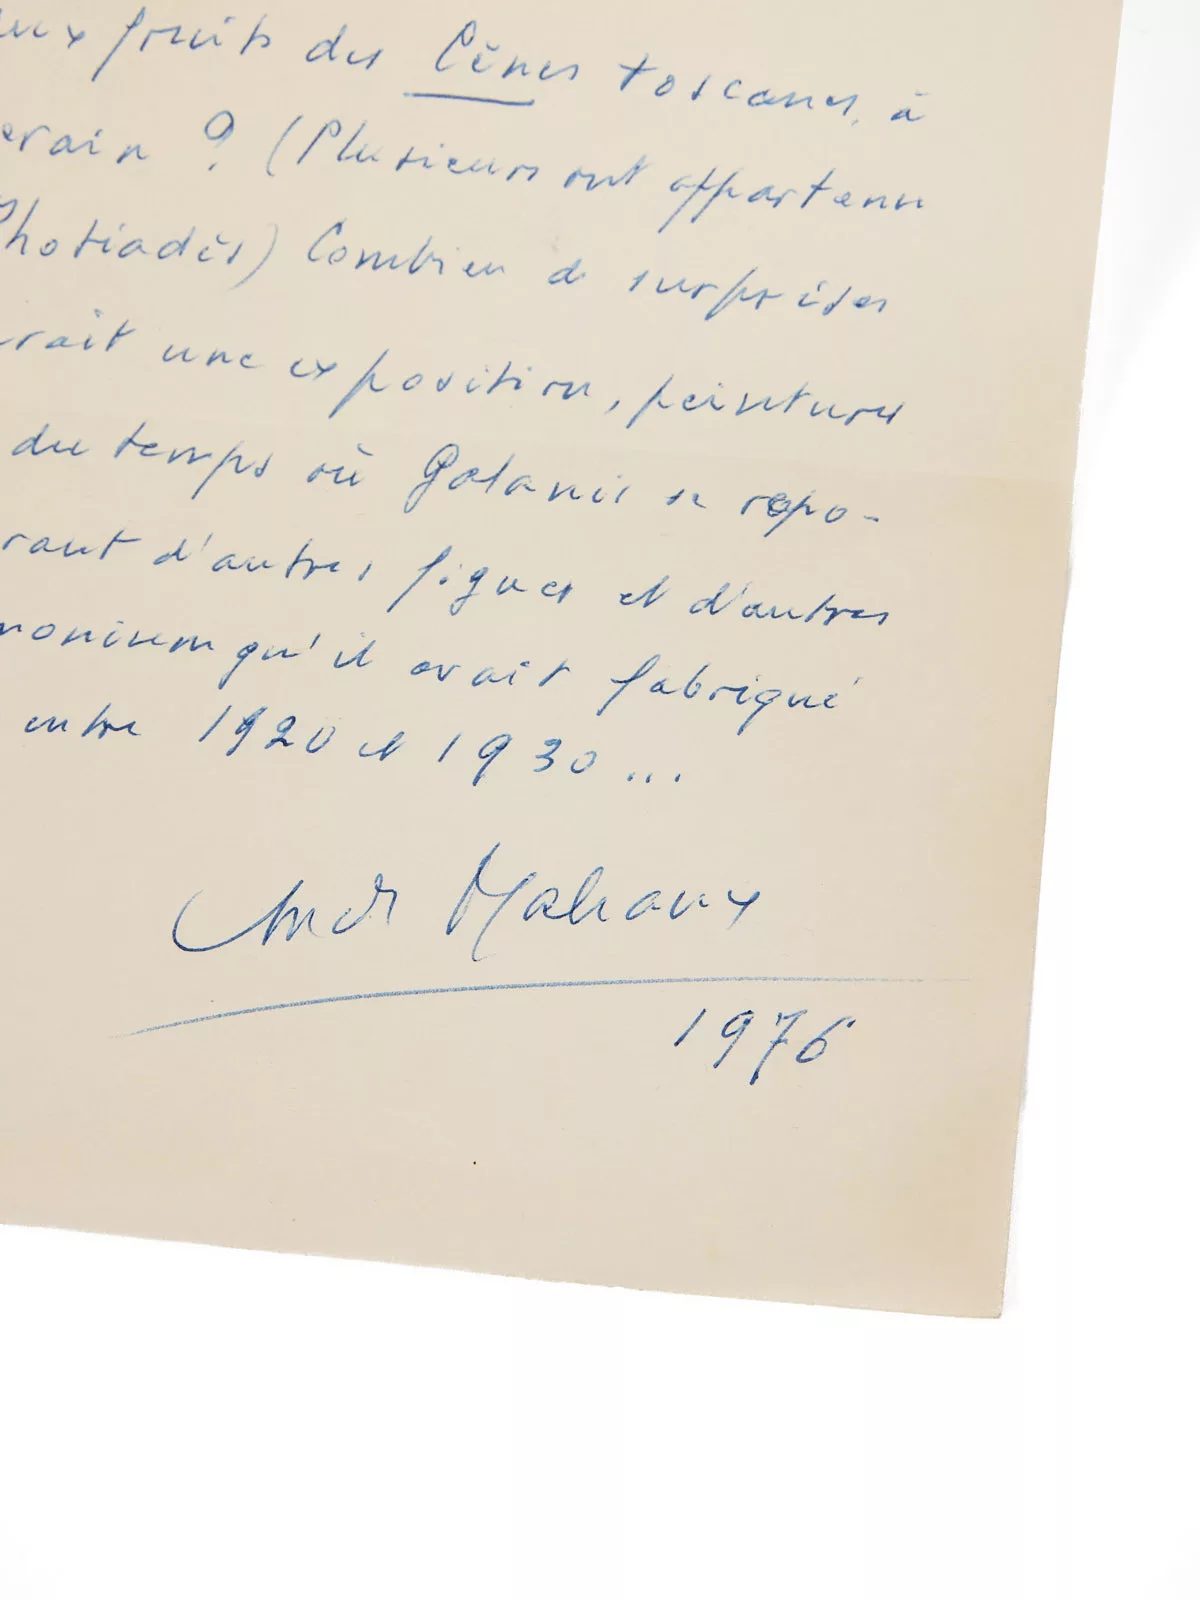 aux fruits des Cènes toscanes, à
erain ? (Plusieurs ont appartenu
Photiadès) Combien de surprises
rait une exposition, peintures
du temps où Galanis se repo-
rant d'autres figues et d'autres
qu'il avait fabriqué
entre 1920 et 1930...
André Malraux
1976